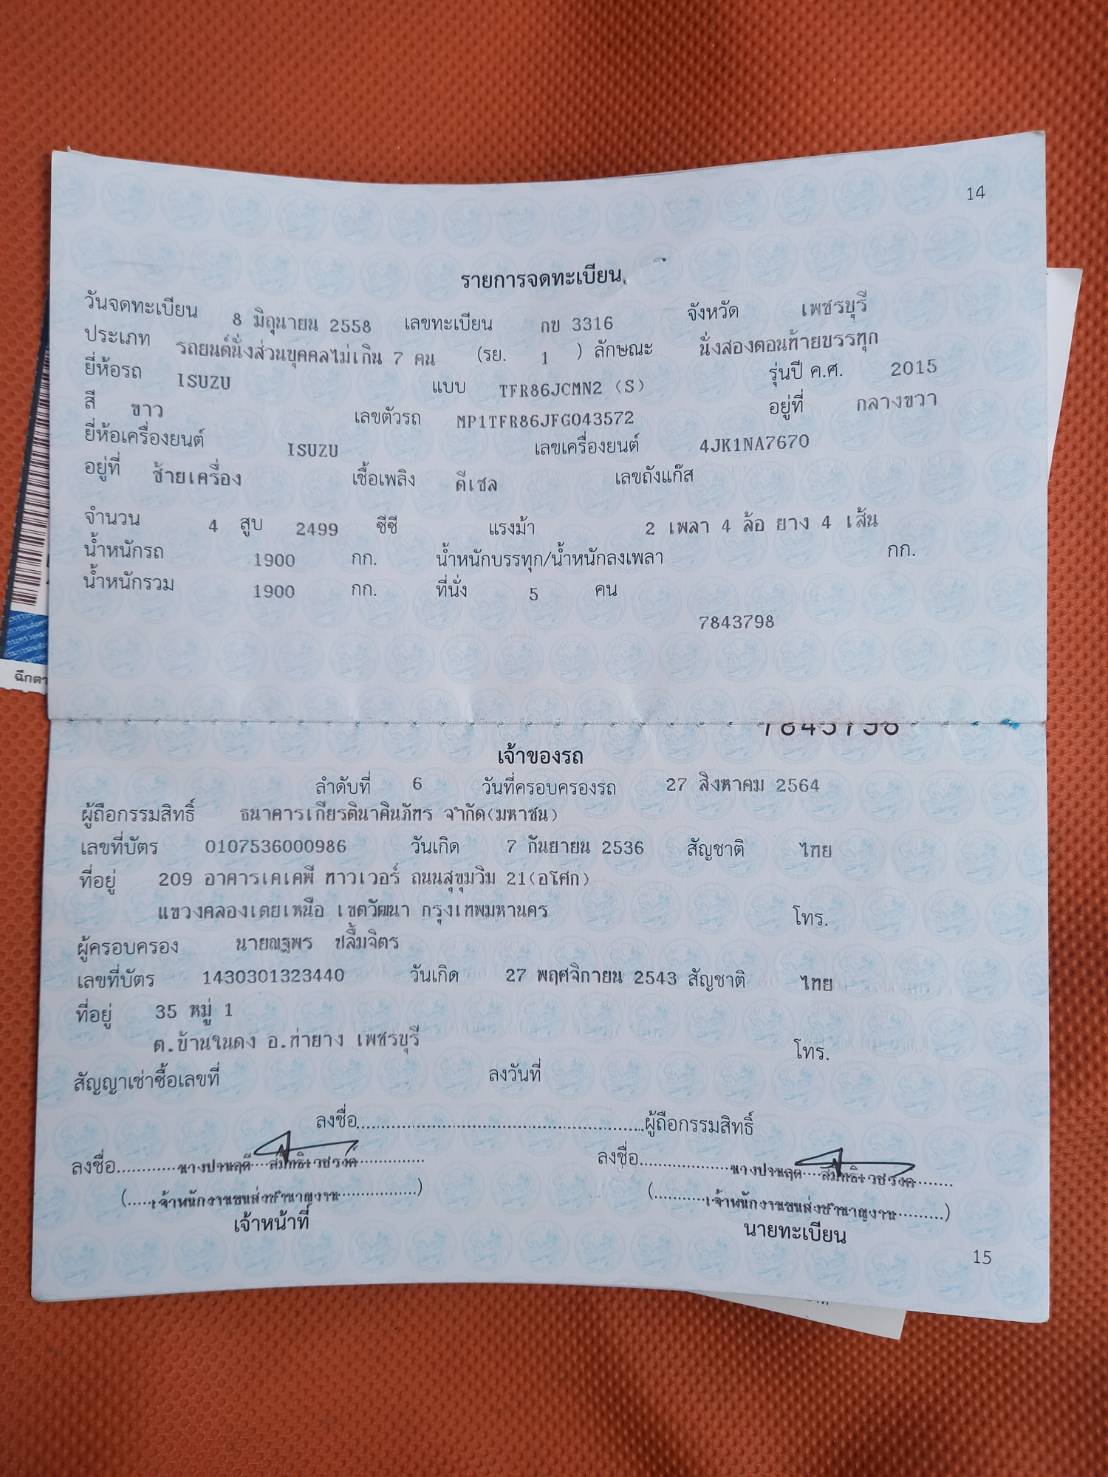 14
รายการจดทะเบียน
วันจดทะเบียน 8 มิถุนายน 2558 เลขทะเบียน กข 3316 จังหวัด เพชรบุรี
ประเภท รถยนต์นั่งส่วนบุคคลไม่เกิน 7 คน (รย. 1 ) ลักษณะ นั่งสองตอนท้ายบรรทุก
ยี่ห้อรถ ISUZU แบบ TFR86JCMN2 (S) รุ่นปี ค.ศ. 2015
สี ขาว เลขตัวรถ MP1TFR86JFG043572 อยู่ที่ กลางขวา
ยี่ห้อเครื่องยนต์ ISUZU เลขเครื่องยนต์ 4JK1NA7670
อยู่ที่ ซ้ายเครื่อง เชื้อเพลิง ดีเซล เลขถังแก๊ส
จำนวน 4 สูบ 2499 ซีซี แรงม้า 2 เพลา 4 ล้อ ยาง 4 เส้น
น้ำหนักรถ 1900 กก. น้ำหนักบรรทุก/น้ำหนักลงเพลา กก.
น้ำหนักรวม 1900 กก. ที่นั่ง 5 คน
7843798
เจ้าของรถ
ลำดับที่ 6 วันที่ครอบครองรถ 27 สิงหาคม 2564
ผู้ถือกรรมสิทธิ์ ธนาคารเกียรตินาคินภัทร จำกัด(มหาชน)
เลขที่บัตร 0107536000986 วันเกิด 7 กันยายน 2536 สัญชาติ ไทย
ที่อยู่ 209 อาคารเคเคพี ทาวเวอร์ ถนนสุขุมวิท 21(อโศก)
แขวงคลองเตยเหนือ เขตวัฒนา กรุงเทพมหานคร โทร.
ผู้ครอบครอง นายณฐพร ปลื้มจิตร
เลขที่บัตร 1430301323440 วันเกิด 27 พฤศจิกายน 2543 สัญชาติ ไทย
ที่อยู่ 35 หมู่ 1
ต.บ้านในดง อ.ท่ายาง เพชรบุรี โทร.
สัญญาเช่าซื้อเลขที่ ลงวันที่
ลงชื่อ ผู้ถือกรรมสิทธิ์
ลงชื่อ ลงชื่อ
(เจ้าพนักงานขนส่งชำนาญงาน) (เจ้าพนักงานขนส่งชำนาญงาน)
เจ้าหน้าที่ นายทะเบียน
15